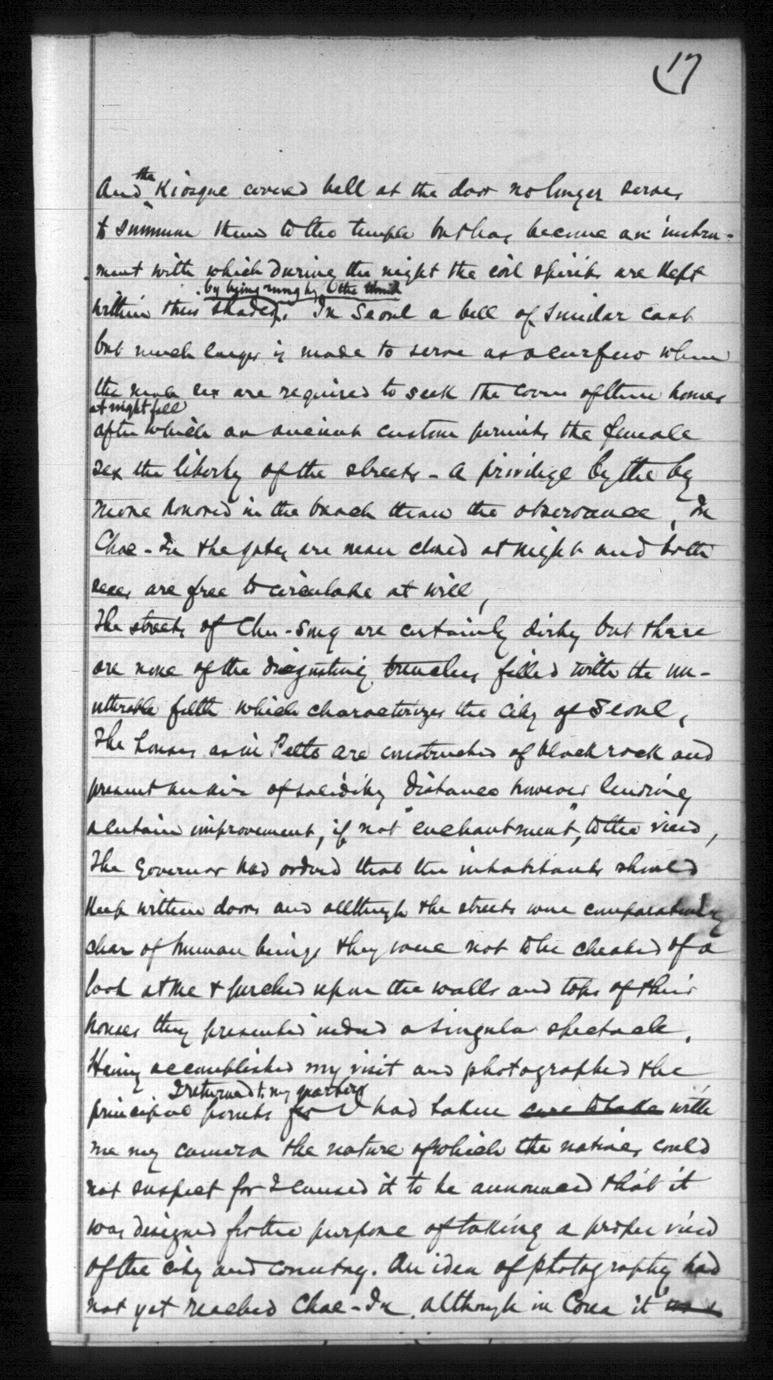 17
the
And Kiosque covered bell at the door no longer serves
to summon them to the temple but has become an instru-
ment with which during the night the evil spirits are kept
by being rung by the
within their shades. In Saoul a bell of similar cast
but much larger is made to serve as a curfew when
the male sex are required to seek the cover of their homes
at night fall
after which an ancient custom permits the female
sex the liberty of the streets - a privilege by the by
more honored in the breach than the observance. In
Chae-Ju the gates are never closed at night and both
sexes are free to circulate at will,
The streets of Chu-Sung are certainly dirty but there
are none of the disgusting trenches filled with the un-
utterable filth which characterizes the city of Seoul,
The houses as in are constructed of black rock and
present an air of solidity distance however lending
a certain improvement, if not "enchantment", to the view,
The Governor had ordered that the inhabitants should
keep within doors and allthough the streets were comparatively
clear of human beings they were not to be cheated of a
look at me & perched upon the walls and tops of their
houses they presented indeed a singular spectacle.
Having accomplished my visit and photographed the
I returned to my quarters
principal points for I had taken with
me my camera the nature of which the natives could
not suspect for I caused it to be announced that it
was designed for the purpose of taking a proper view
of the city and country. An idea of photography had
not yet reached Chae-Ju, although in Corea it